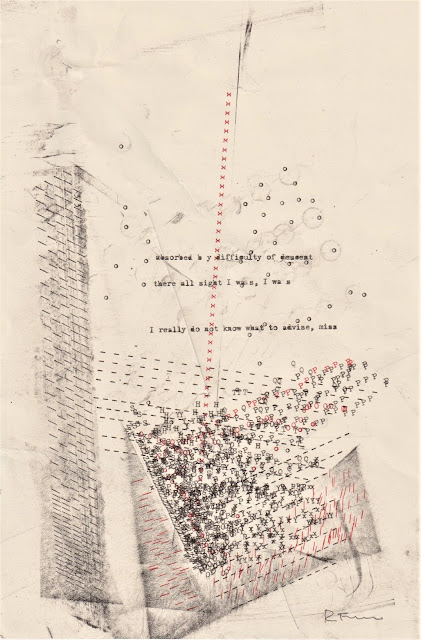 absorbed b y difficulty of descent
there all sight I was, I wa s
I really do not know what to advise, miss